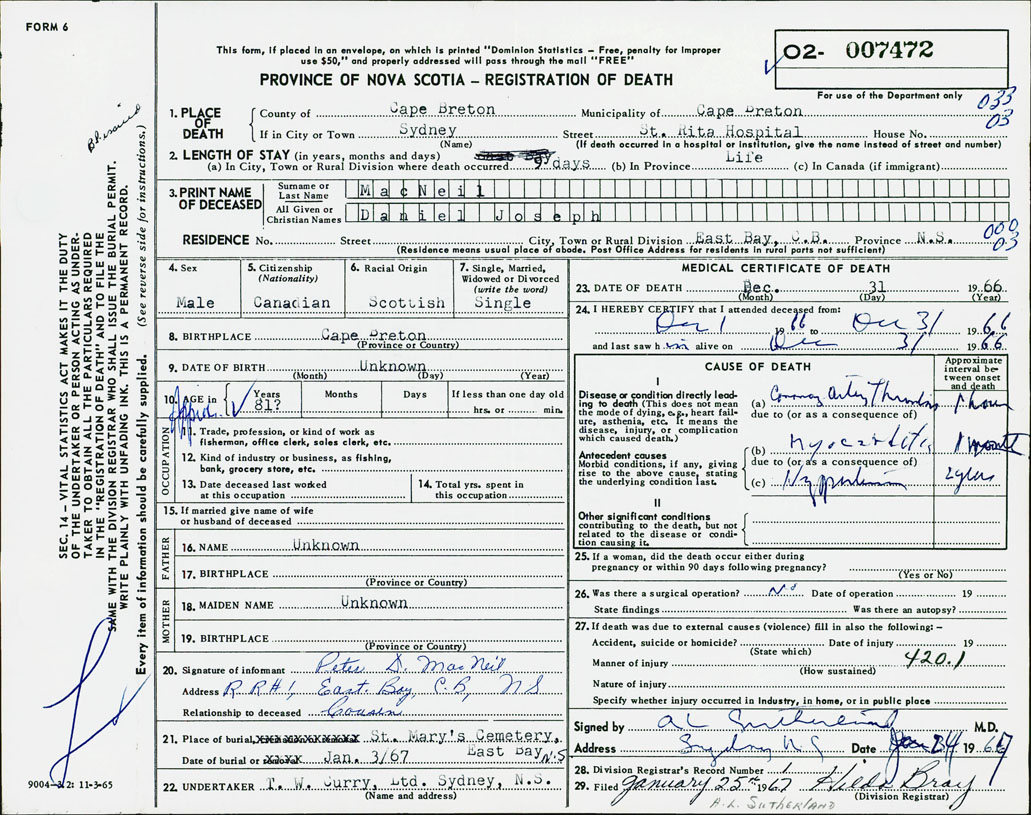 FORM 6
This form, if placed in an envelope, on which is printed "Dominion Statistics – Free, penalty for improper
use $50," and properly addressed will pass through the mail "FREE"
PROVINCE OF NOVA SCOTIA – REGISTRATION OF DEATH
02- 007472
For use of the Department only
033
03
1. PLACE OF DEATH
County of Cape Breton Municipality of Cape Breton
If in City or Town Sydney Street St. Rita Hospital House No.
(Name) (If death occurred in a hospital or institution, give the name instead of street and number)
2. LENGTH OF STAY (in years, months and days)
(a) In City, Town or Rural Division where death occurred days (b) In Province Life (c) In Canada (if immigrant)
3. PRINT NAME OF DECEASED
Surname or Last Name MacNeil
All Given or Christian Names Daniel Joseph
000
03
RESIDENCE No. Street City, Town or Rural Division East Bay, C.B. Province N.S.
(Residence means usual place of abode. Post Office Address for residents in rural parts not sufficient)
4. Sex Male
5. Citizenship (Nationality) Canadian
6. Racial Origin Scottish
7. Single, Married, Widowed or Divorced (write the word) Single
8. BIRTHPLACE Cape Breton
(Province or Country)
9. DATE OF BIRTH Unknown
(Month) (Day) (Year)
10. AGE in Years 81? Months Days If less than one day old hrs. or min.
OCCUPATION
11. Trade, profession, or kind of work as
fisherman, office clerk, sales clerk, etc.
12. Kind of industry or business, as fishing,
bank, grocery store, etc.
13. Date deceased last worked
at this occupation
14. Total yrs. spent in
this occupation
15. If married give name of wife
or husband of deceased
FATHER
16. NAME Unknown
17. BIRTHPLACE
(Province or Country)
MOTHER
18. MAIDEN NAME Unknown
19. BIRTHPLACE
(Province or Country)
20. Signature of informant Peter D. MacNeil
Address R R #1, East Bay, C.B, NS
Relationship to deceased Cousin
21. Place of burial, St. Mary's Cemetery,
East Bay N.S
Date of burial or Jan. 3/67
22. UNDERTAKER T. W. Curry, Ltd. Sydney, N.S.
(Name and address)
MEDICAL CERTIFICATE OF DEATH
23. DATE OF DEATH Dec. 31 1966
(Month) (Day) (Year)
24. I HEREBY CERTIFY that I attended deceased from:
Dec 1 1966 to Dec 31 1966
and last saw him alive on Dec 31 1966
CAUSE OF DEATH
Approximate interval between onset and death
I
Disease or condition directly leading to death (This does not mean
the mode of dying, e.g., heart failure, asthenia, etc. It means the
disease, injury, or complication
which caused death.)
(a) Coronary Artery Thrombosis 1 hour
due to (or as a consequence of)
(b) Myocarditis 1 month
Antecedent causes
Morbid conditions, if any, giving
rise to the above cause, stating
the underlying condition last.
due to (or as a consequence of)
(c) Hypertension 2 years
II
Other significant conditions
contributing to the death, but not
related to the disease or condition causing it.
25. If a woman, did the death occur either during
pregnancy or within 90 days following pregnancy?
(Yes or No)
26. Was there a surgical operation? No Date of operation 19
State findings Was there an autopsy?
27. If death was due to external causes (violence) fill in also the following: –
Accident, suicide or homicide? Date of injury 19
(State which)
Manner of injury 420.1
(How sustained)
Nature of injury
Specify whether injury occurred in industry, in home, or in public place
Signed by A L Sutherland M.D.
Address Sydney N S Date Jan 24 1967
28. Division Registrar's Record Number 1
29. Filed January 25th 1967 Hilda Bray
(Division Registrar)
A. L. SUTHERLAND
SEC. 14 – VITAL STATISTICS ACT MAKES IT THE DUTY
OF THE UNDERTAKER OR PERSON ACTING AS UNDER-
TAKER TO OBTAIN ALL THE PARTICULARS REQUIRED
IN THE "REGISTRATION OF DEATH" AND TO FILE THE
SAME WITH THE DIVISION REGISTRAR WHO SHALL ISSUE THE BURIAL PERMIT.
WRITE PLAINLY WITH UNFADING INK. THIS IS A PERMANENT RECORD.
Every item of information should be carefully supplied. (See reverse side for instructions.)
11-3-65